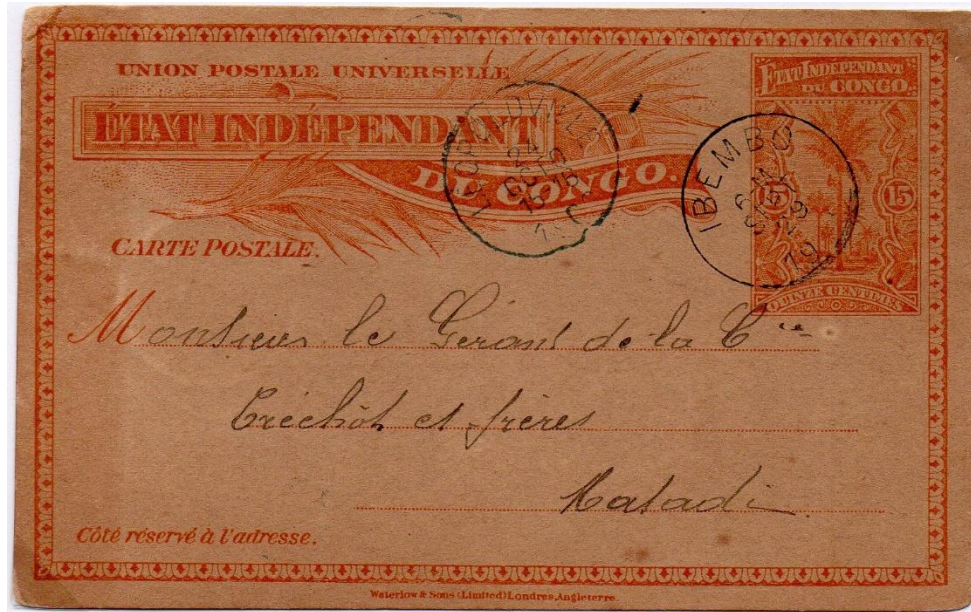 UNION POSTALE UNIVERSELLE
ÉTAT INDÉPENDANT
DU CONGO.
CARTE POSTALE.
ÉTAT INDÉPENDANT
DU CONGO.
15 15
QUINZE CENTIMES
LÉOPOLDVILLE
OCT
IBEMBO
SEPT
Monsieur le Gérant de la Cie
Tréchôt et frères
Matadi
Côté réservé à l'adresse.
Waterlow & Sons (Limited) Londres, Angleterre.